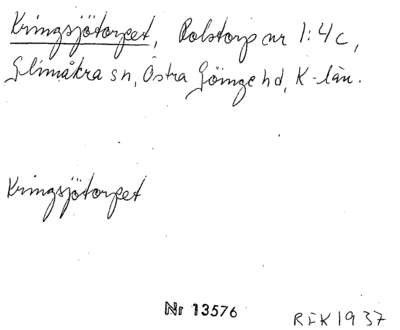 Kringsjötorpet, Rolstorp nr 1:4c,
Glimåkra sn, Östra Göinge hd, K-län.
Kringsjötorpet
Nr 13576
RFK 1937